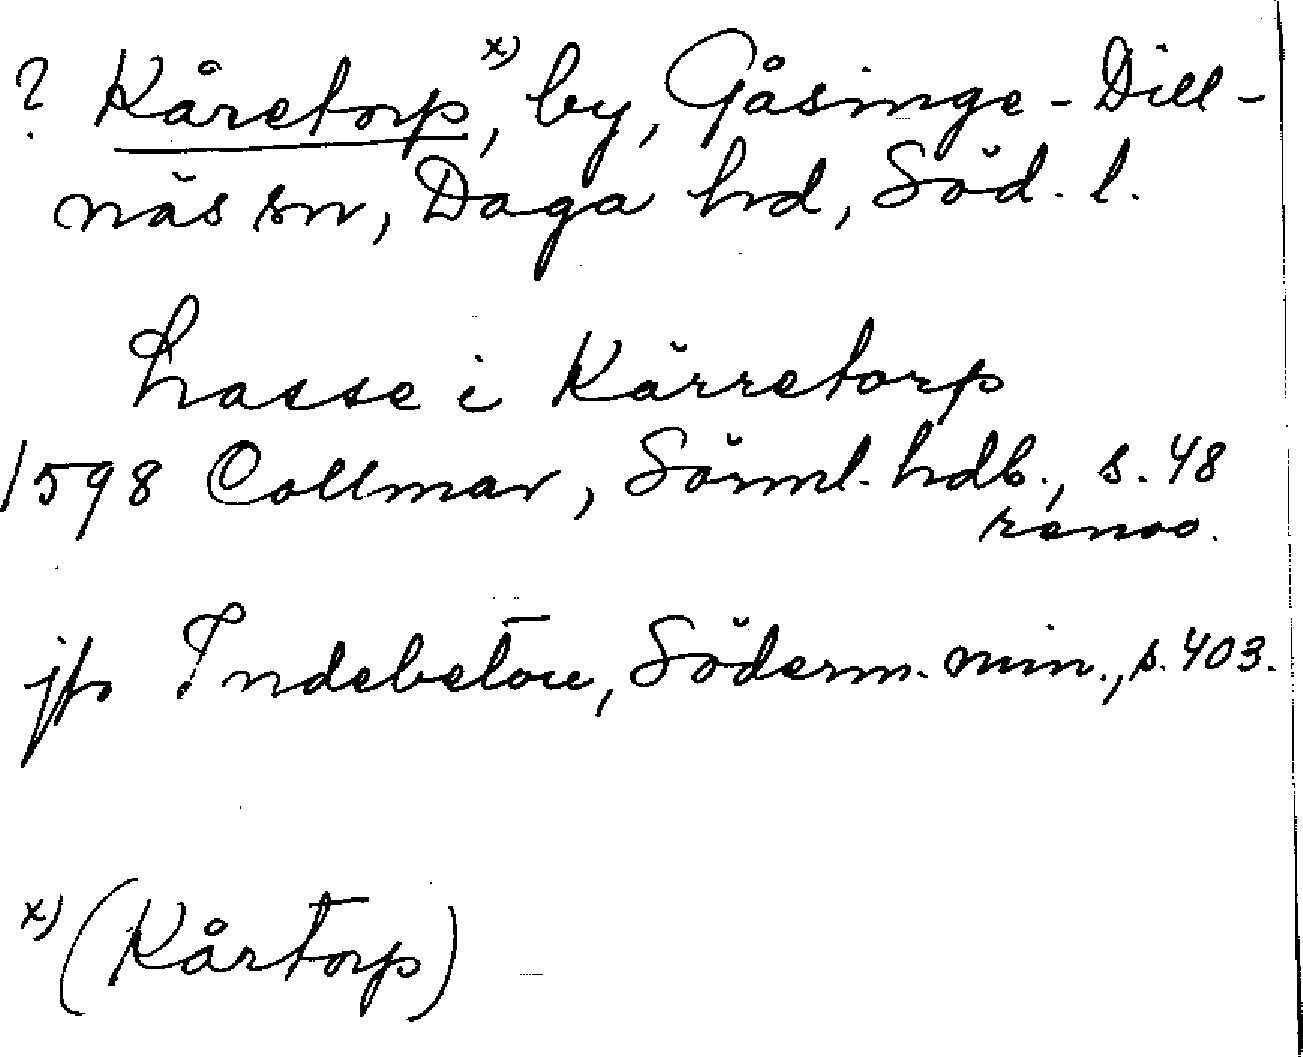 ? Kåretorp, x) by, Gåsinge-Dill-
näs sn, Daga hd, Söd. l.
Lasse i Kärretorp
1598 Collmar, Sörml. hdb., s. 48
renov.
jfr Indebetou, Söderm. min., s. 403.
x) (Kårtorp)